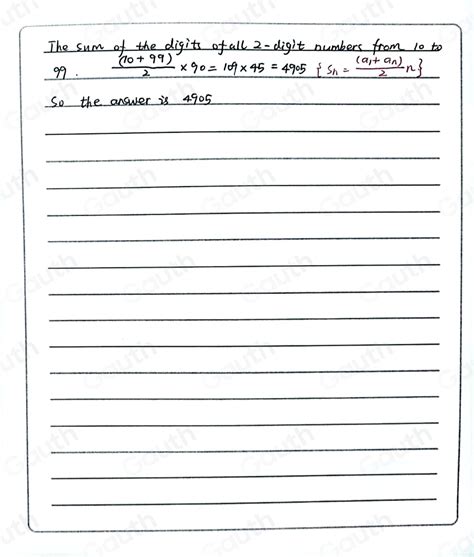 The sum of the digits of all 2-digit numbers from 10 to
99. (10+99)/2 × 90 = 109 × 45 = 4905 { Sn = (a1+an)/2 n }
So the answer is 4905
Gauth